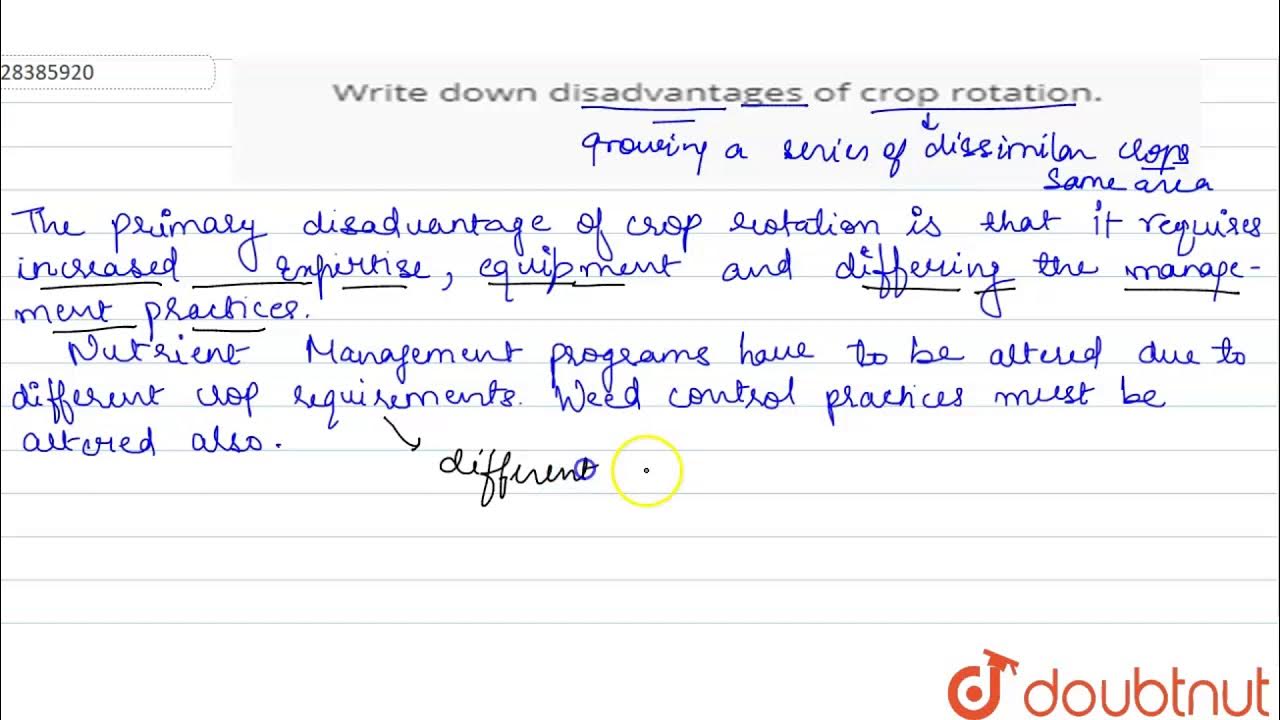 28385920
Write down disadvantages of crop rotation.
growing a series of dissimilar crops
same area
The primary disadvantage of crop rotation is that it requires
increased expertise, equipment and differing the manage-
ment practices.
Nutrient Management programs have to be altered due to
different crop requirements. Weed control practices must be
altered also.
different
doubtnut